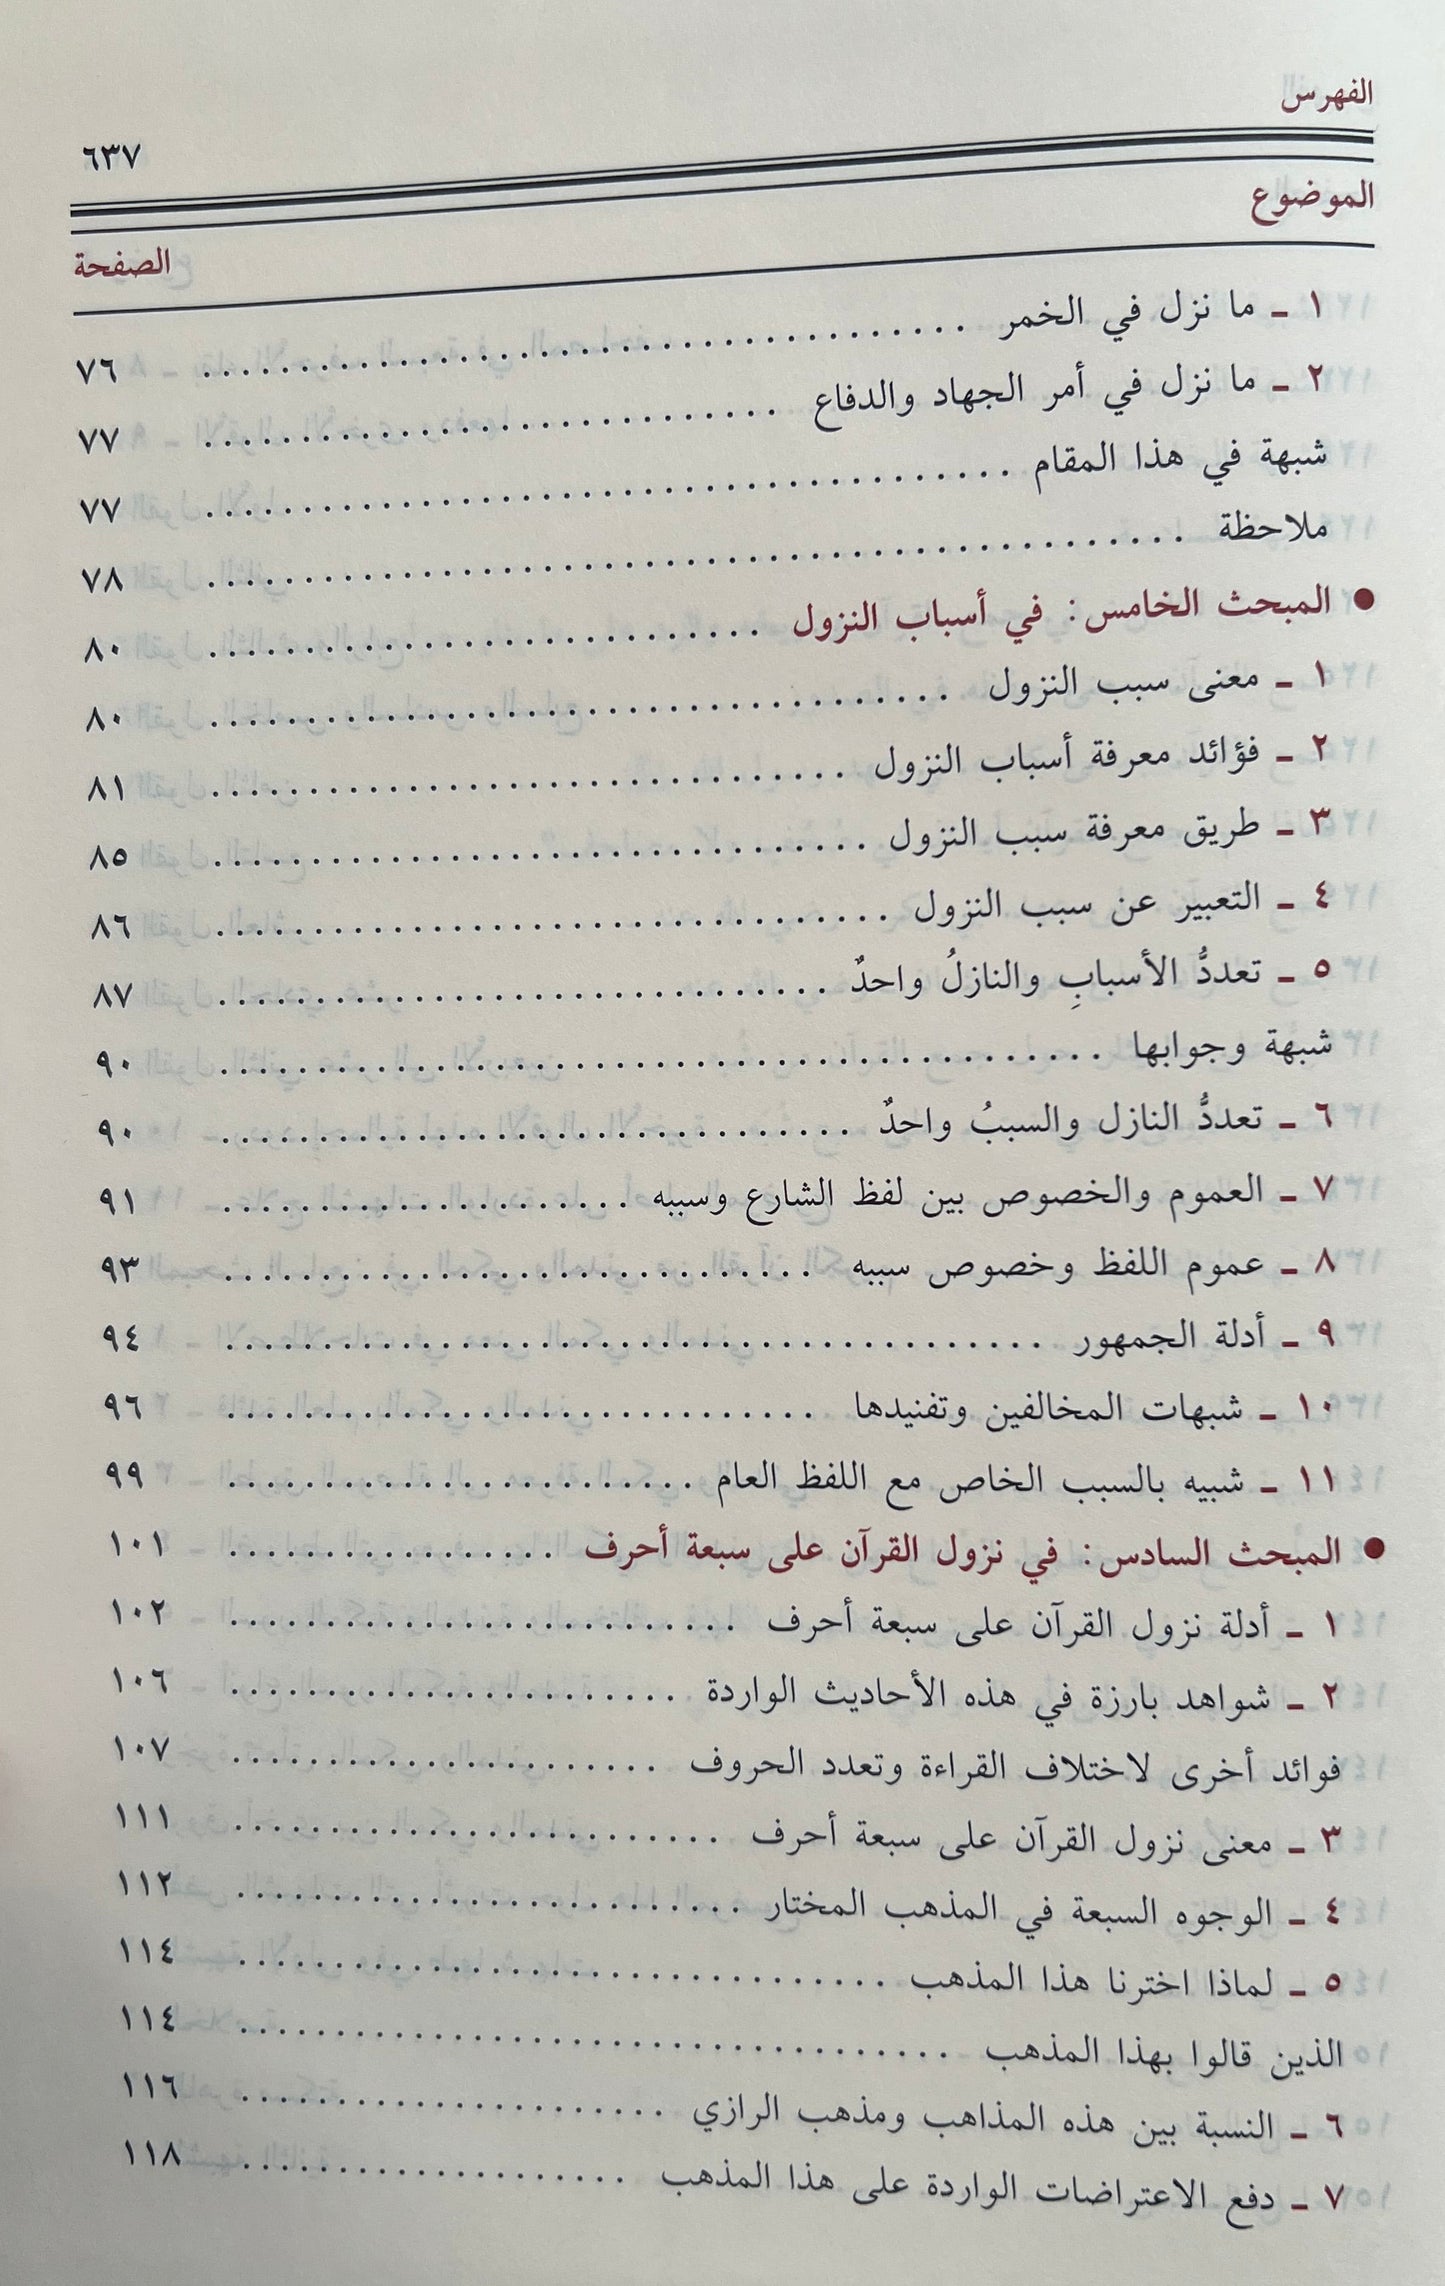 الفهرس
٦٣٧
الموضوع
الصفحة
١ ـ ما نزل في الخمر ........................ ٧٦
٢ ـ ما نزل في أمر الجهاد والدفاع ........................ ٧٧
شبهة في هذا المقام ........................ ٧٧
ملاحظة ........................ ٧٨
● المبحث الخامس: في أسباب النزول ........................ ٨٠
١ ـ معنى سبب النزول ........................ ٨٠
٢ ـ فؤائد معرفة أسباب النزول ........................ ٨١
٣ ـ طريق معرفة سبب النزول ........................ ٨٥
٤ ـ التعبير عن سبب النزول ........................ ٨٦
٥ ـ تعددُّ الأسبابِ والنازلُ واحدٌ ........................ ٨٧
شبهة وجوابها ........................ ٩٠
٦ ـ تعددُّ النازل والسببُ واحدٌ ........................ ٩٠
٧ ـ العموم والخصوص بين لفظ الشارع وسببه ........................ ٩١
٨ ـ عموم اللفظ وخصوص سببه ........................ ٩٣
٩ ـ أدلة الجمهور ........................ ٩٤
١٠ ـ شبهات المخالفين وتفنيدها ........................ ٩٦
١١ ـ شبيه بالسبب الخاص مع اللفظ العام ........................ ٩٩
● المبحث السادس: في نزول القرآن على سبعة أحرف ........................ ١٠١
١ ـ أدلة نزول القرآن على سبعة أحرف ........................ ١٠٢
٢ ـ شواهد بارزة في هذه الأحاديث الواردة ........................ ١٠٦
فوائد أخرى لاختلاف القراءة وتعدد الحروف ........................ ١٠٧
٣ ـ معنى نزول القرآن على سبعة أحرف ........................ ١١١
٤ ـ الوجوه السبعة في المذهب المختار ........................ ١١٢
٥ ـ لماذا اخترنا هذا المذهب ........................ ١١٤
الذين قالوا بهذا المذهب ........................ ١١٤
٦ ـ النسبة بين هذه المذاهب ومذهب الرازي ........................ ١١٦
٧ ـ دفع الاعتراضات الواردة على هذا المذهب ........................ ١١٨